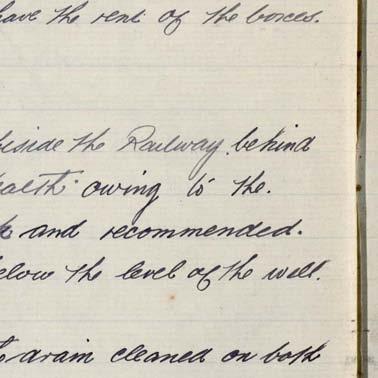 have the rent of the boxes.
beside the Railway behind
health owing to the.
and recommended.
below the level of the well.
drain cleaned on both